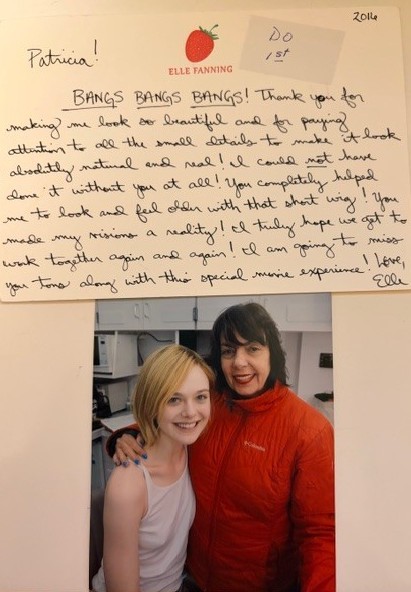 2016
Do
1st
Patricia!
ELLE FANNING
BANGS BANGS BANGS! Thank you for
making me look so beautiful and for paying
attention to all the small details to make it look
absolutely natural and real! I could not have
done it without you at all! You completely helped
me to look and feel older with that short wig! You
made my visions a reality! I truly hope we get to
work together again and again! I am going to miss
you tons along with this special movie experience! Love,
Elle
Columbia